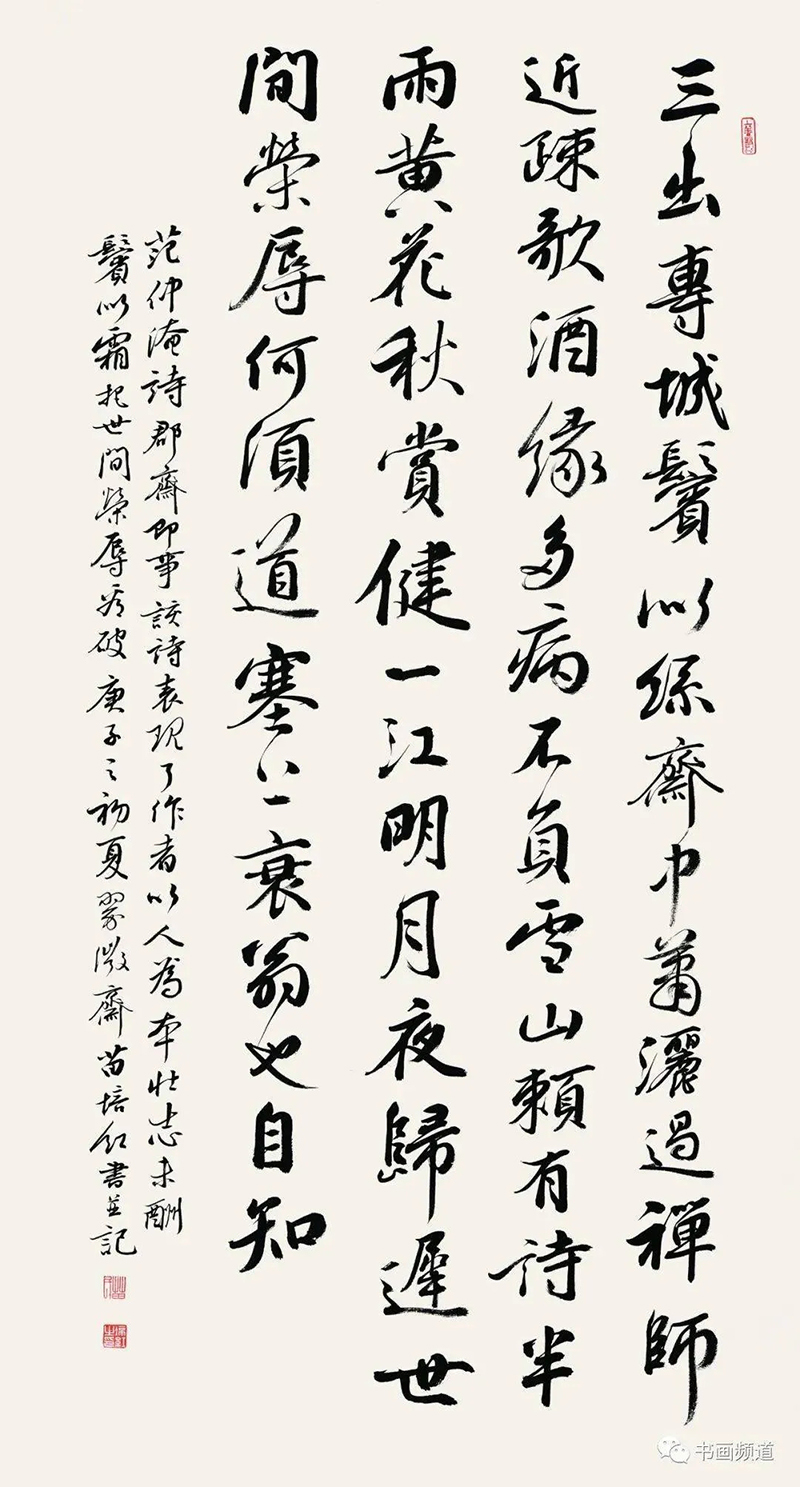 三出專城鬢似絲齋中蕭灑過禪師
近疎歌酒緣多病不負雲山賴有詩半
雨黃花秋賞健一江明月夜歸遲世
間榮辱何須道塞上衰翁也自知
范仲淹詩郡齋即事該詩表现了作者以人為本壯志未酬
鬢似霜把世間榮辱看破庚子之初夏翠微齋苗培紅書並記
书画频道